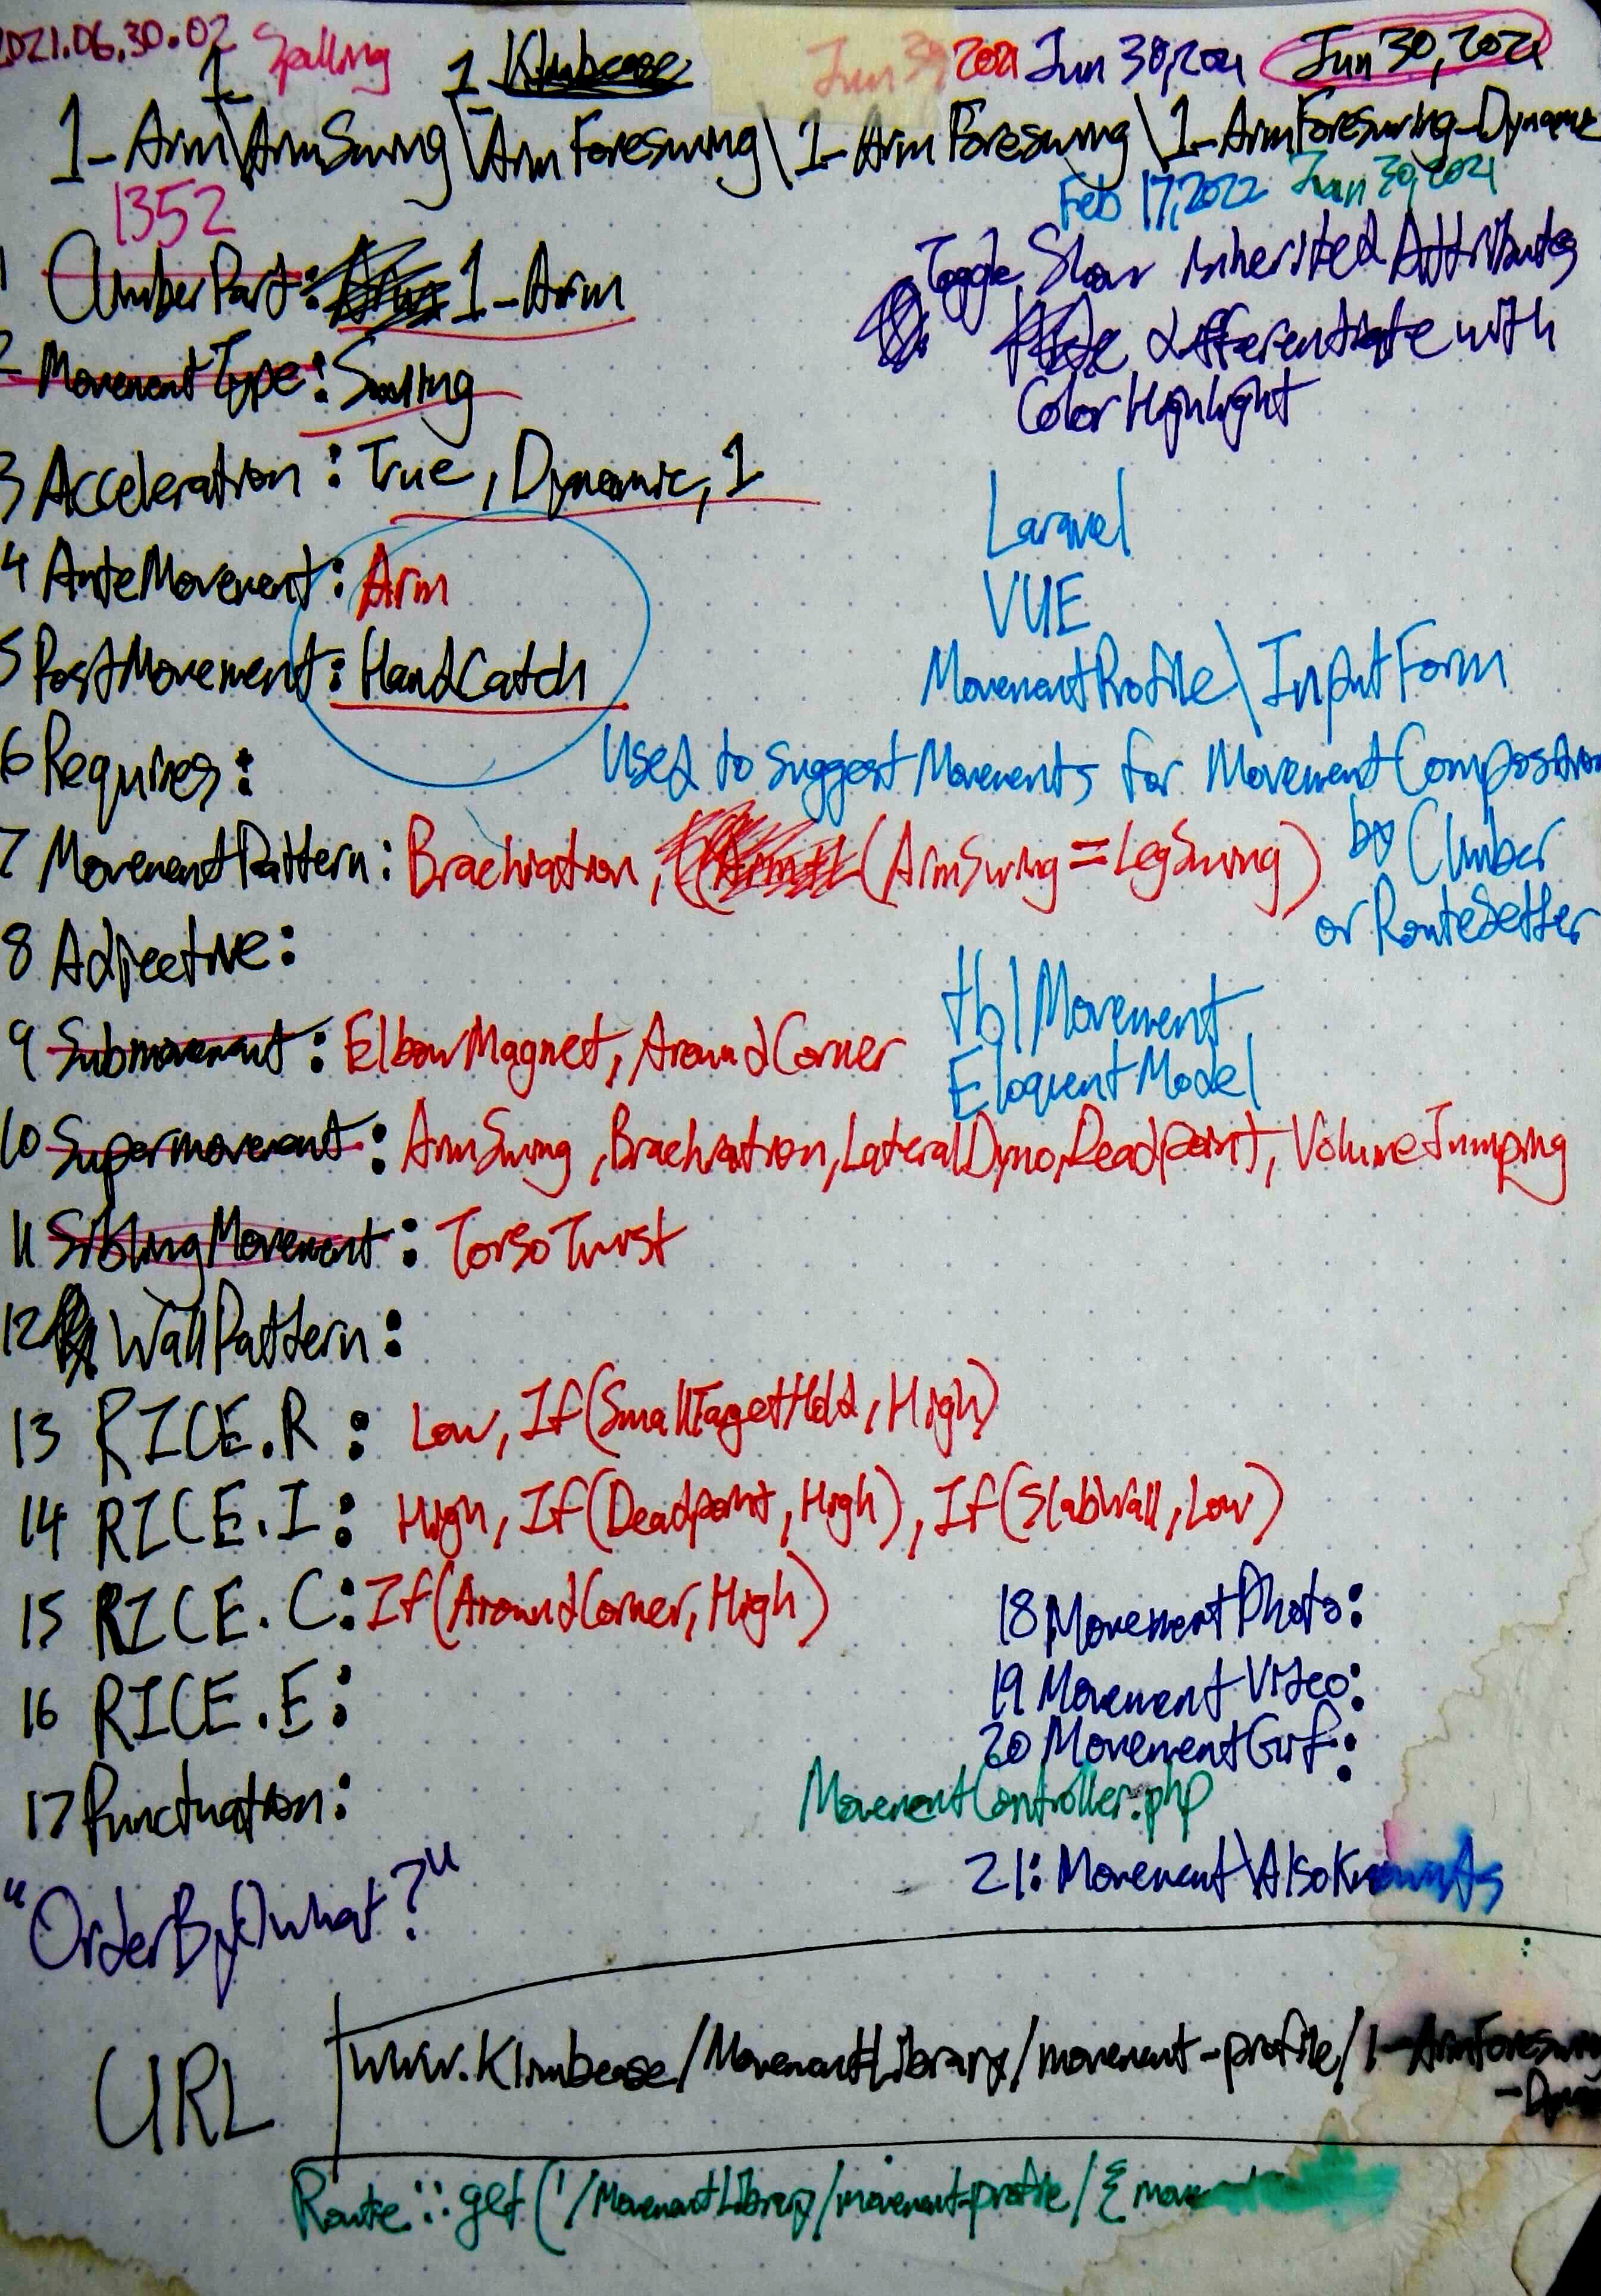 2021.06.30.02 Spalling 1 Klimbease Jun 30, 2021 Jun 30, 2021 Jun 30, 2021
1
1-Arm\ArmSwing\ArmForeswing\1-ArmForeswing\1-ArmForeswing-Dynamic
1352
Feb 17, 2022 Jun 30, 2021
1 ClimberPart: Arm 1-Arm
Toggle Show Inherited Attributes
differentiate with
Color Highlight
2 MovementType: Swing
3 Acceleration: True, Dynamic, 1
Laravel
4 AnteMovement: Arm
VUE
5 PostMovement: HandCatch
MovementProfile\InputForm
6 Requires:
Used to suggest Movements for MovementComposition
by Climber
or RouteSetter
7 MovementPattern: Brachiation, (ArmSwing=LegSwing)
8 Adjective:
tblMovement
Eloquent Model
9 Submovement: ElbowMagnet, AroundCorner
10 Supermovement: ArmSwing, Brachiation, LateralDyno, Deadpoint, VolumeJumping
11 SiblingMovement: TorsoTwist
12 WallPattern:
13 RICE.R: Low, If(SmallTagetHold, High)
14 RICE.I: High, If(Deadpoint, High), If(SlabWall, Low)
15 RICE.C: If(AroundCorner, High)
16 RICE.E:
17 Punctuation:
18 MovementPhoto:
19 MovementVideo:
20 MovementGif:
MovementController.php
21: Movement\AlsoKnownAs
"OrderBy()what?"
URL
www.Klimbease/MovementLibrary/movement-profile/1-ArmForeswing
Route::get('/MovementLibrary/movement-profile/{